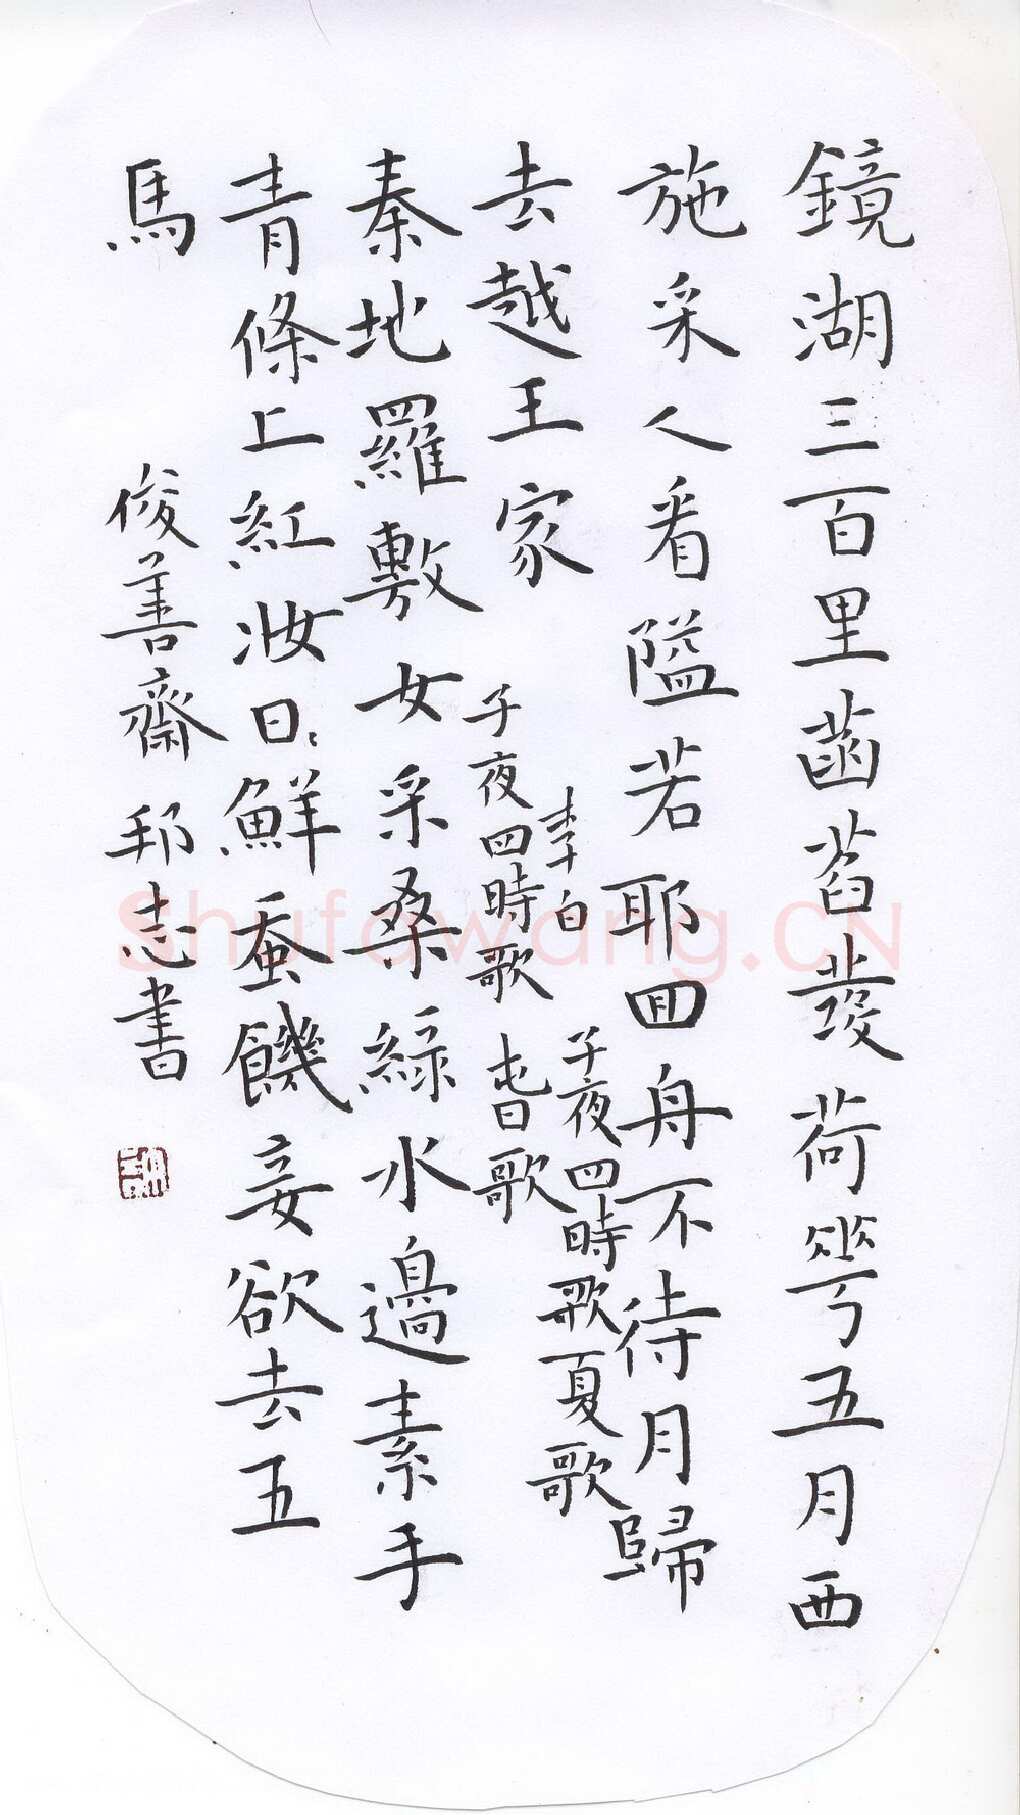 鏡湖三百里菡萏發荷花五月西
施采人看隘若耶回舟不待月歸
去越王家
李白
子夜四時歌夏歌
子夜四時歌 春歌
秦地羅敷女采桑綠水邊素手
青條上紅妝日:鮮蚕饑妾欲去五
馬
俊善齋 邦志書
Shufawang.CN